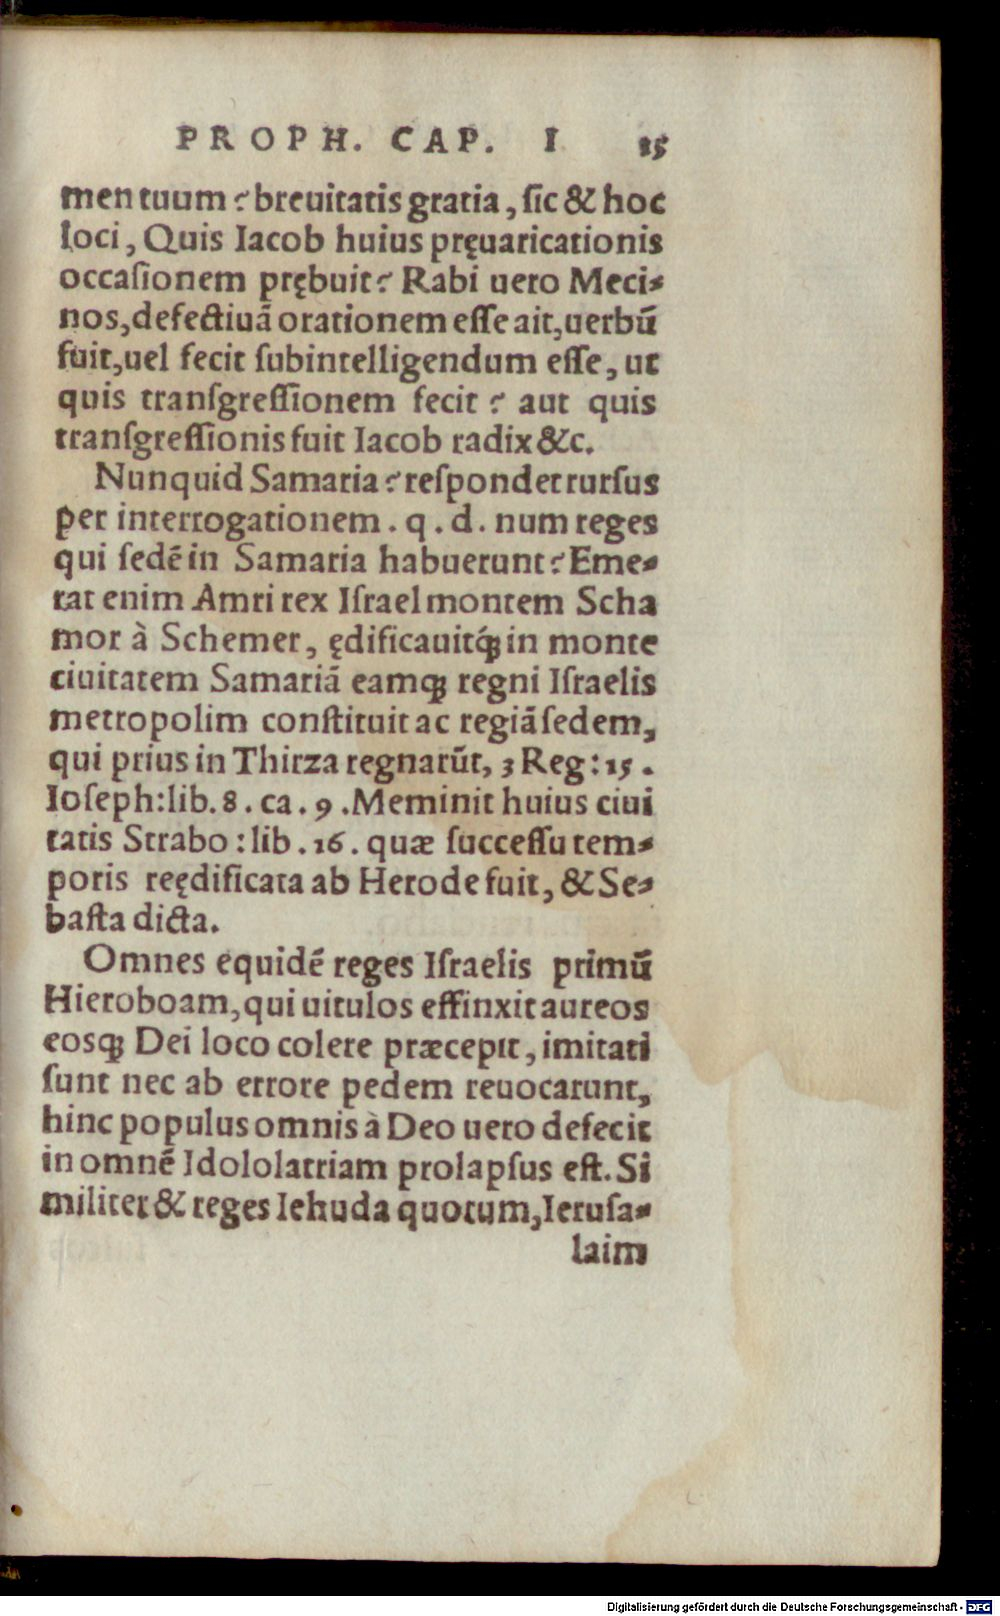 PROPH. CAP. I 15
men tuum? breuitatis gratia, ſic & hoc
loci, Quis Iacob huius pręuaricationis
occaſionem prębuit? Rabi uero Meci-
nos, defectiuā orationem eſſe ait, uerbū
fuit, uel fecit ſubintelligendum eſſe, ut
quis tranſgreſſionem fecit? aut quis
tranſgreſſionis fuit Iacob radix &c.
Nunquid Samaria? reſpondet rurſus
per interrogationem. q. d. num reges
qui ſedē in Samaria habuerunt? Eme-
rat enim Amri rex Iſrael montem Scha
mor à Schemer, ędificauitq́ꝫ in monte
ciuitatem Samariā eamqꝫ regni Iſraelis
metropolim conſtituit ac regiā ſedem,
qui prius in Thirza regnarūt, 3 Reg: 15.
Ioſeph: lib. 8. ca. 9. Meminit huius ciui
tatis Strabo: lib. 16. quæ ſucceſſu tem-
poris reędificata ab Herode fuit, & Se-
baſta dicta.
Omnes equidē reges Iſraelis primū
Hieroboam, qui uitulos effinxit aureos
eosqꝫ Dei loco colere præcepit, imitati
ſunt nec ab errore pedem reuocarunt,
hinc populus omnis à Deo uero defecit
in omnē Idololatriam prolapſus eſt. Si
militer & reges Iehuda quorum, Ieruſa-
laim
Digitalisierung gefördert durch die Deutsche Forschungsgemeinschaft - DFG